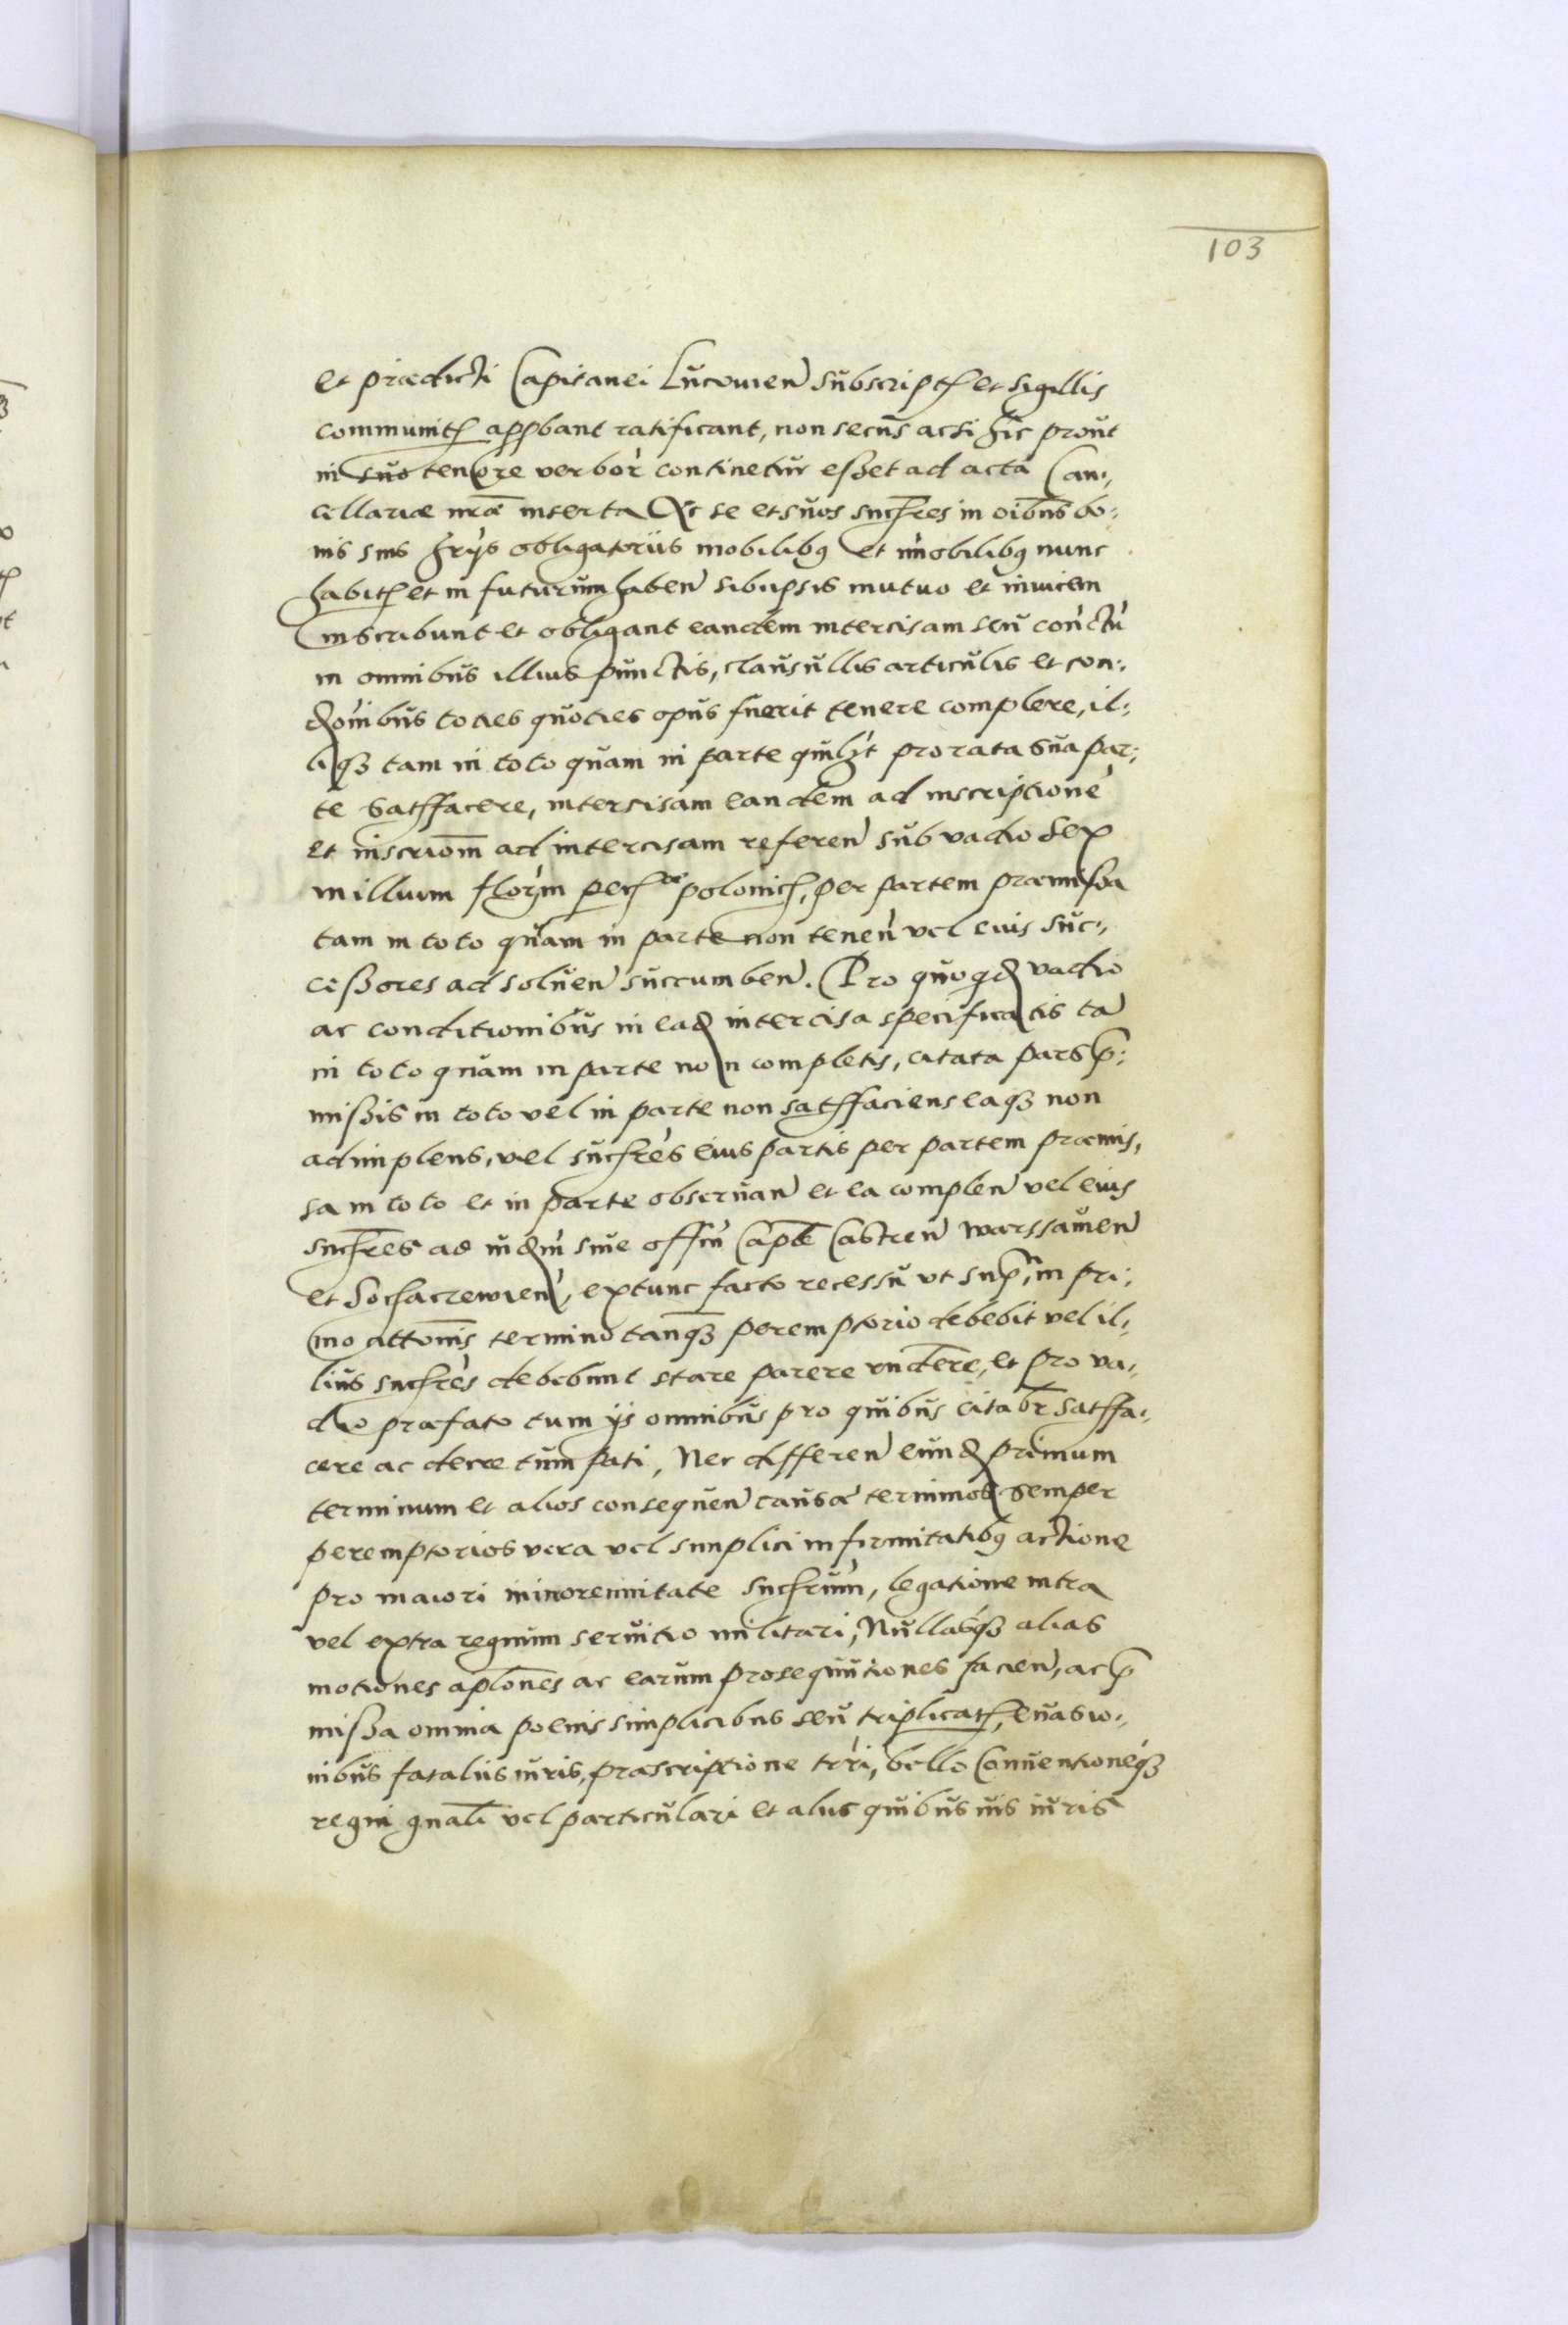 103
et prædicti Capitanei Lucouien subscript et sigillis
communit appbant ratificant, non secus acsi hic prout
in suo tenore verbor continetur esset ad acta Can-
cellariæ nræ inserta Ac se et suos sucres in oibus bo-
nis suis hrÿs obligatoriis mobilibq et imobilibq nunc
habit et in futurum haben sibiipsis mutuo et inuicem
inscribunt et obligant eandem intercisam seu contctu
in omnibus illius punctis, clausullis articulis et con-
dōnibus toties quoties opus fuerit tenere complere, il-
liqȝ tam in toto quam in parte quilbt pro rata sua par-
te satffacere, intercisam eandem ad inscriptione
et inscriom ad intercisam referen sub vadio sex
millium flor in pec polonic, per partem præmissa
tam in toto quam in parte non tenen vel eius suc-
cessores ad soluen succumben. Pro quo qd vadio
ac conditionibus in ead intercisa specificatis ta
in toto quam in parte non completis, citata pars p-
missis in toto vel in parte non satffaciens eaqȝ non
adimplens, vel sucres eius partis per partem præmis-
sa in toto et in parte obseruan et ea complen vel eius
sucres ad iudm siue offm Caple Castren Warssauien
et Sochaczewien, extunc facto recessu vt sup, in pri-
mo attonis termino tanqȝ peremptorio debebit vel il-
lius sucres debebunt stare parere rndere, et pro va-
dio præfato tum ijs omnibus pro quibus citabr satffa-
cere ac decretum pati, Nec differen eund primum
terminum et alios consequen causæ terminos semper
peremptorios vera vel simplici infirmitatibq actione
pro maiori minorennitate sucrum, legatione intra
vel extra regnum seruitio militari, Nullasqȝ alias
motiones aplones ac earum prosequutiones facien, ac p
missa omnia poenis simplicibus seu triplicat, euasio-
nibus fatalius iuris, præscriptione trri, bello Conuentioneqȝ
regni gnali vel particulari et aliis quibusuis iuris